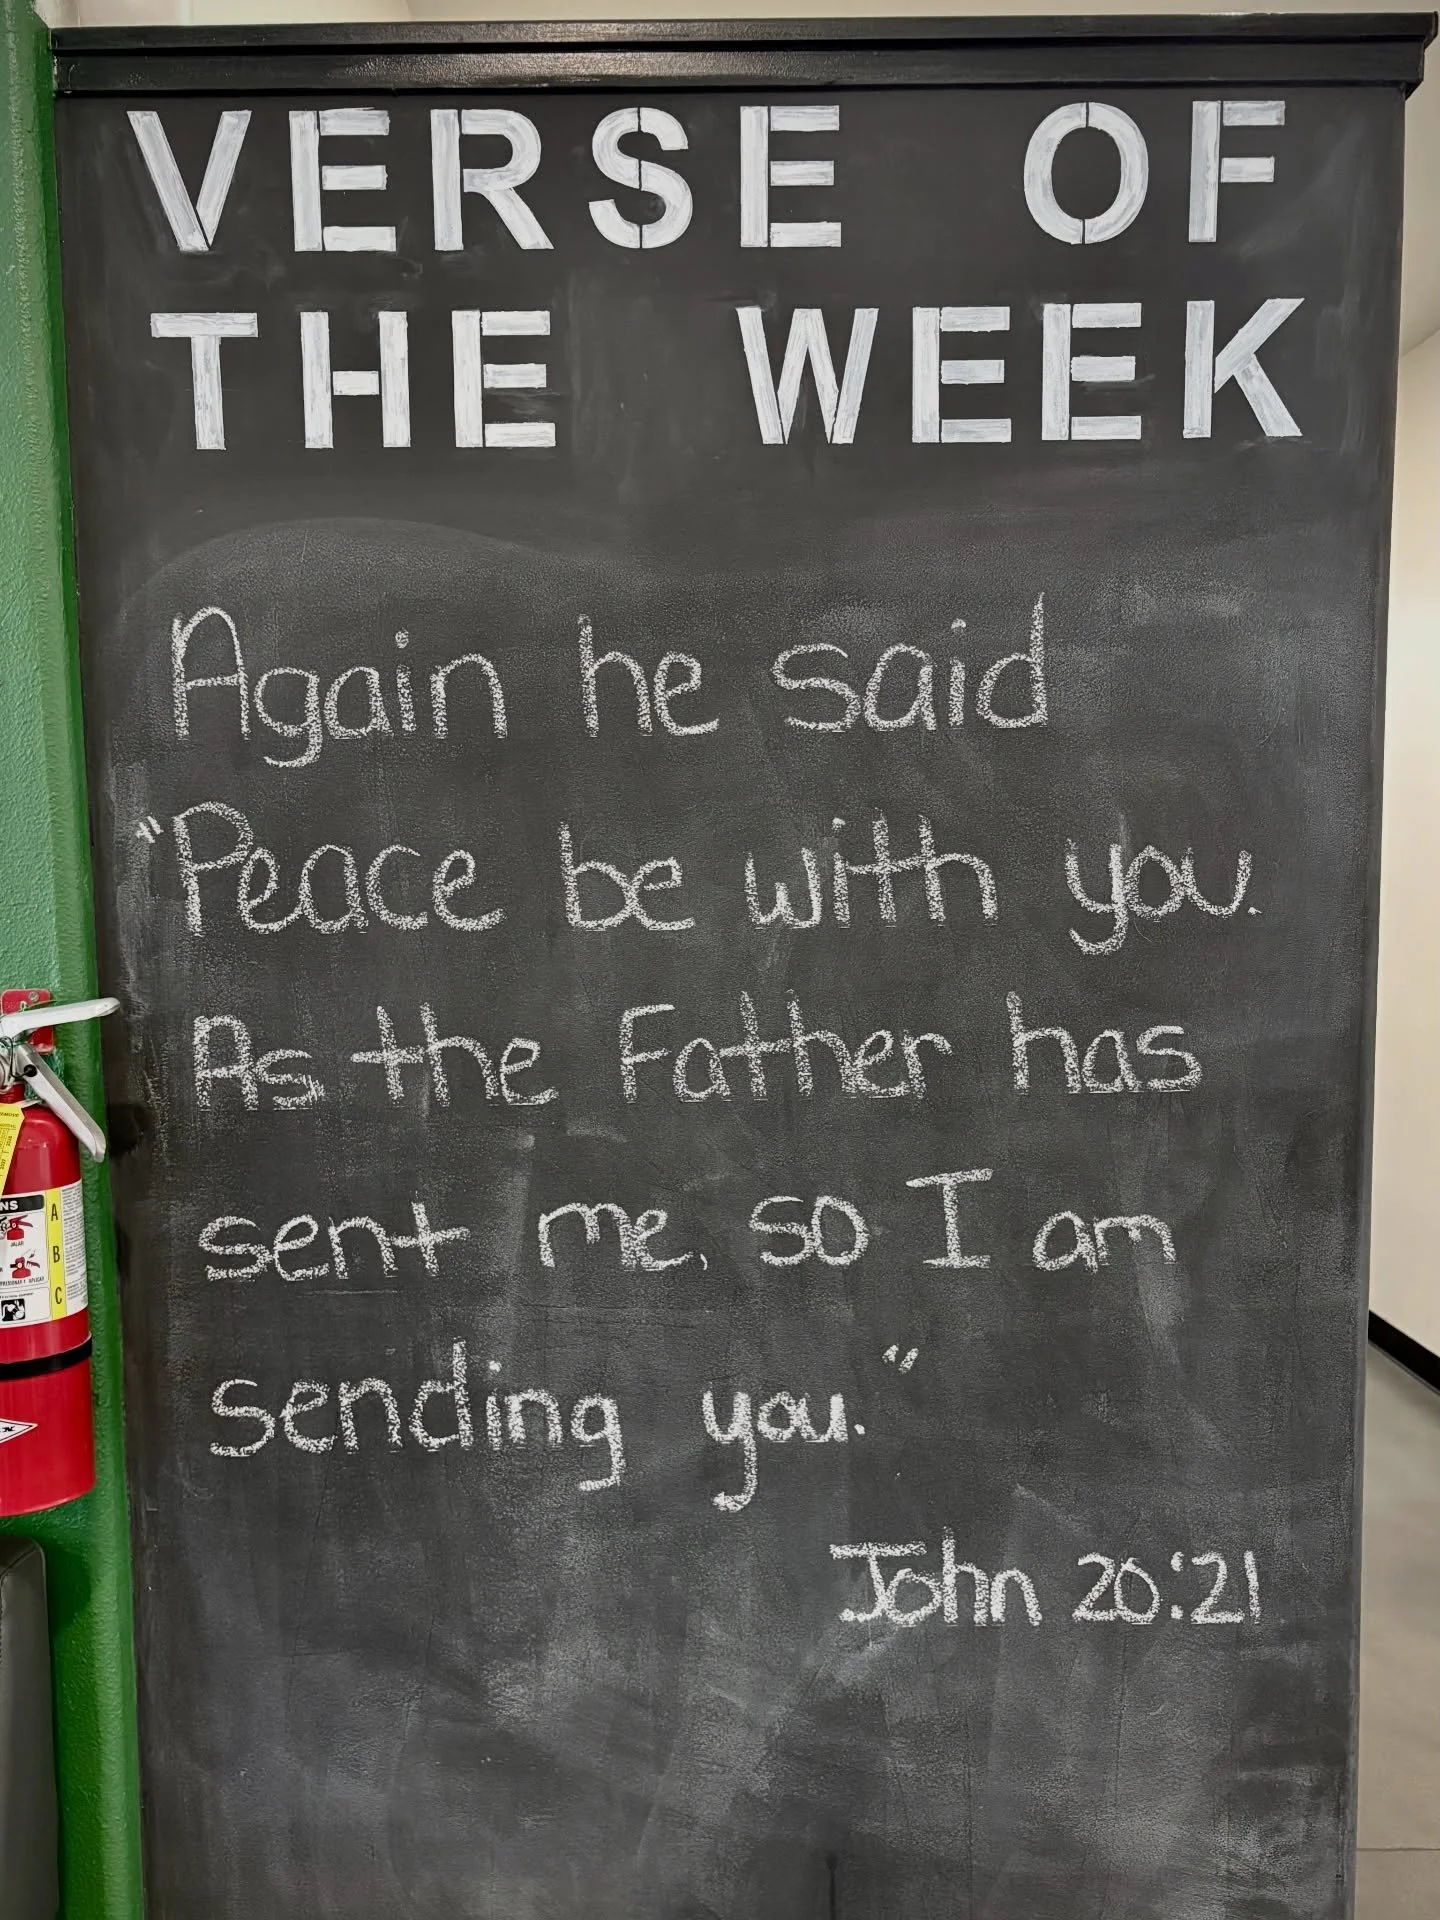 VERSE OF
THE WEEK
Again he said
"Peace be with you.
As the Father has
sent me, so I am
sending you."
John 20:21
NS
JALAR
A
B
C